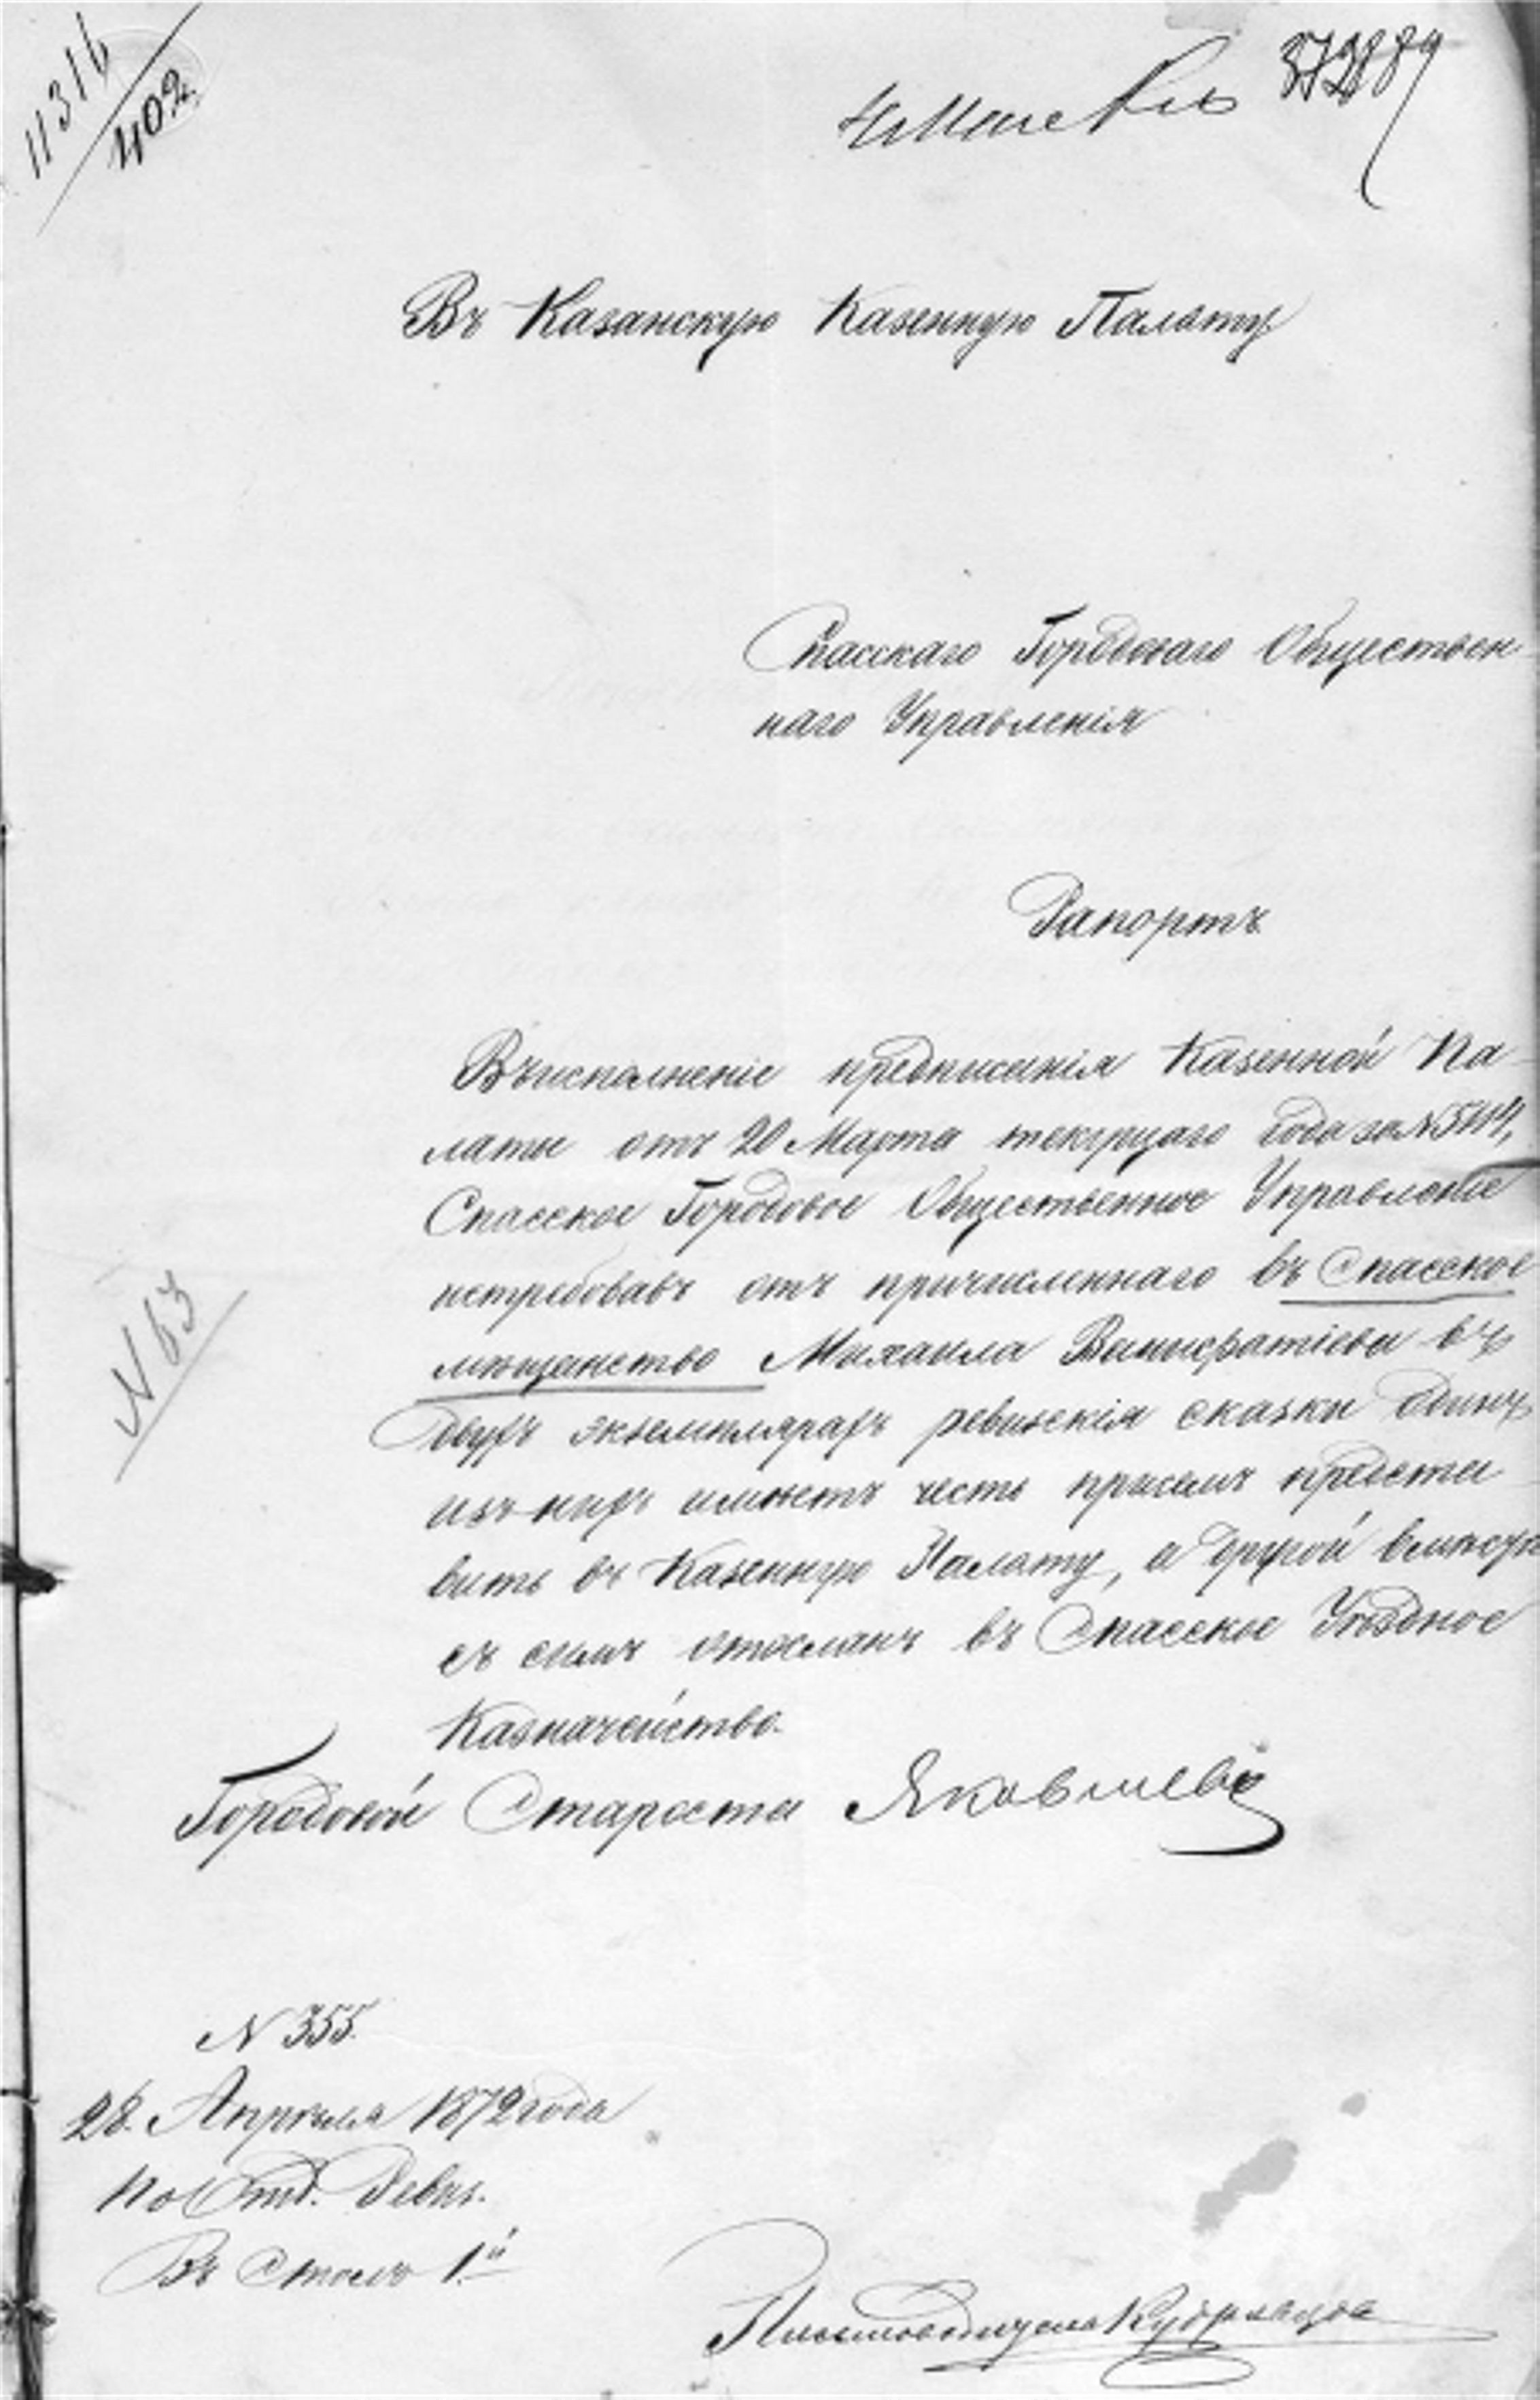 11316
402
4 Мая
89
Въ Казанскую Казенную Палату
Спасскаго Городоваго Обществен-
наго Управленія
Рапортъ
Въ исполненіе предписанія Казенной Па-
латы отъ 20 Марта текущаго года за N
Спасское Городовое Общественное Управленіе
истребовавъ отъ причисленнаго въ Спасское
мѣщанство Михаила въ
двухъ экземплярахъ ревизскія сказки одинъ
изъ нихъ имѣетъ честь при семъ предста-
вить въ Казенную Палату, а другой вмѣстѣ
съ симъ отосланъ въ Спасское Уѣздное
Казначейство.
Городовой Староста Яковлевъ
N 63
N 355.
28. Апрѣля 1872 года
По Отд. Ревиз.
Въ Столъ 1й
Письмоводитель Кудрявцовъ